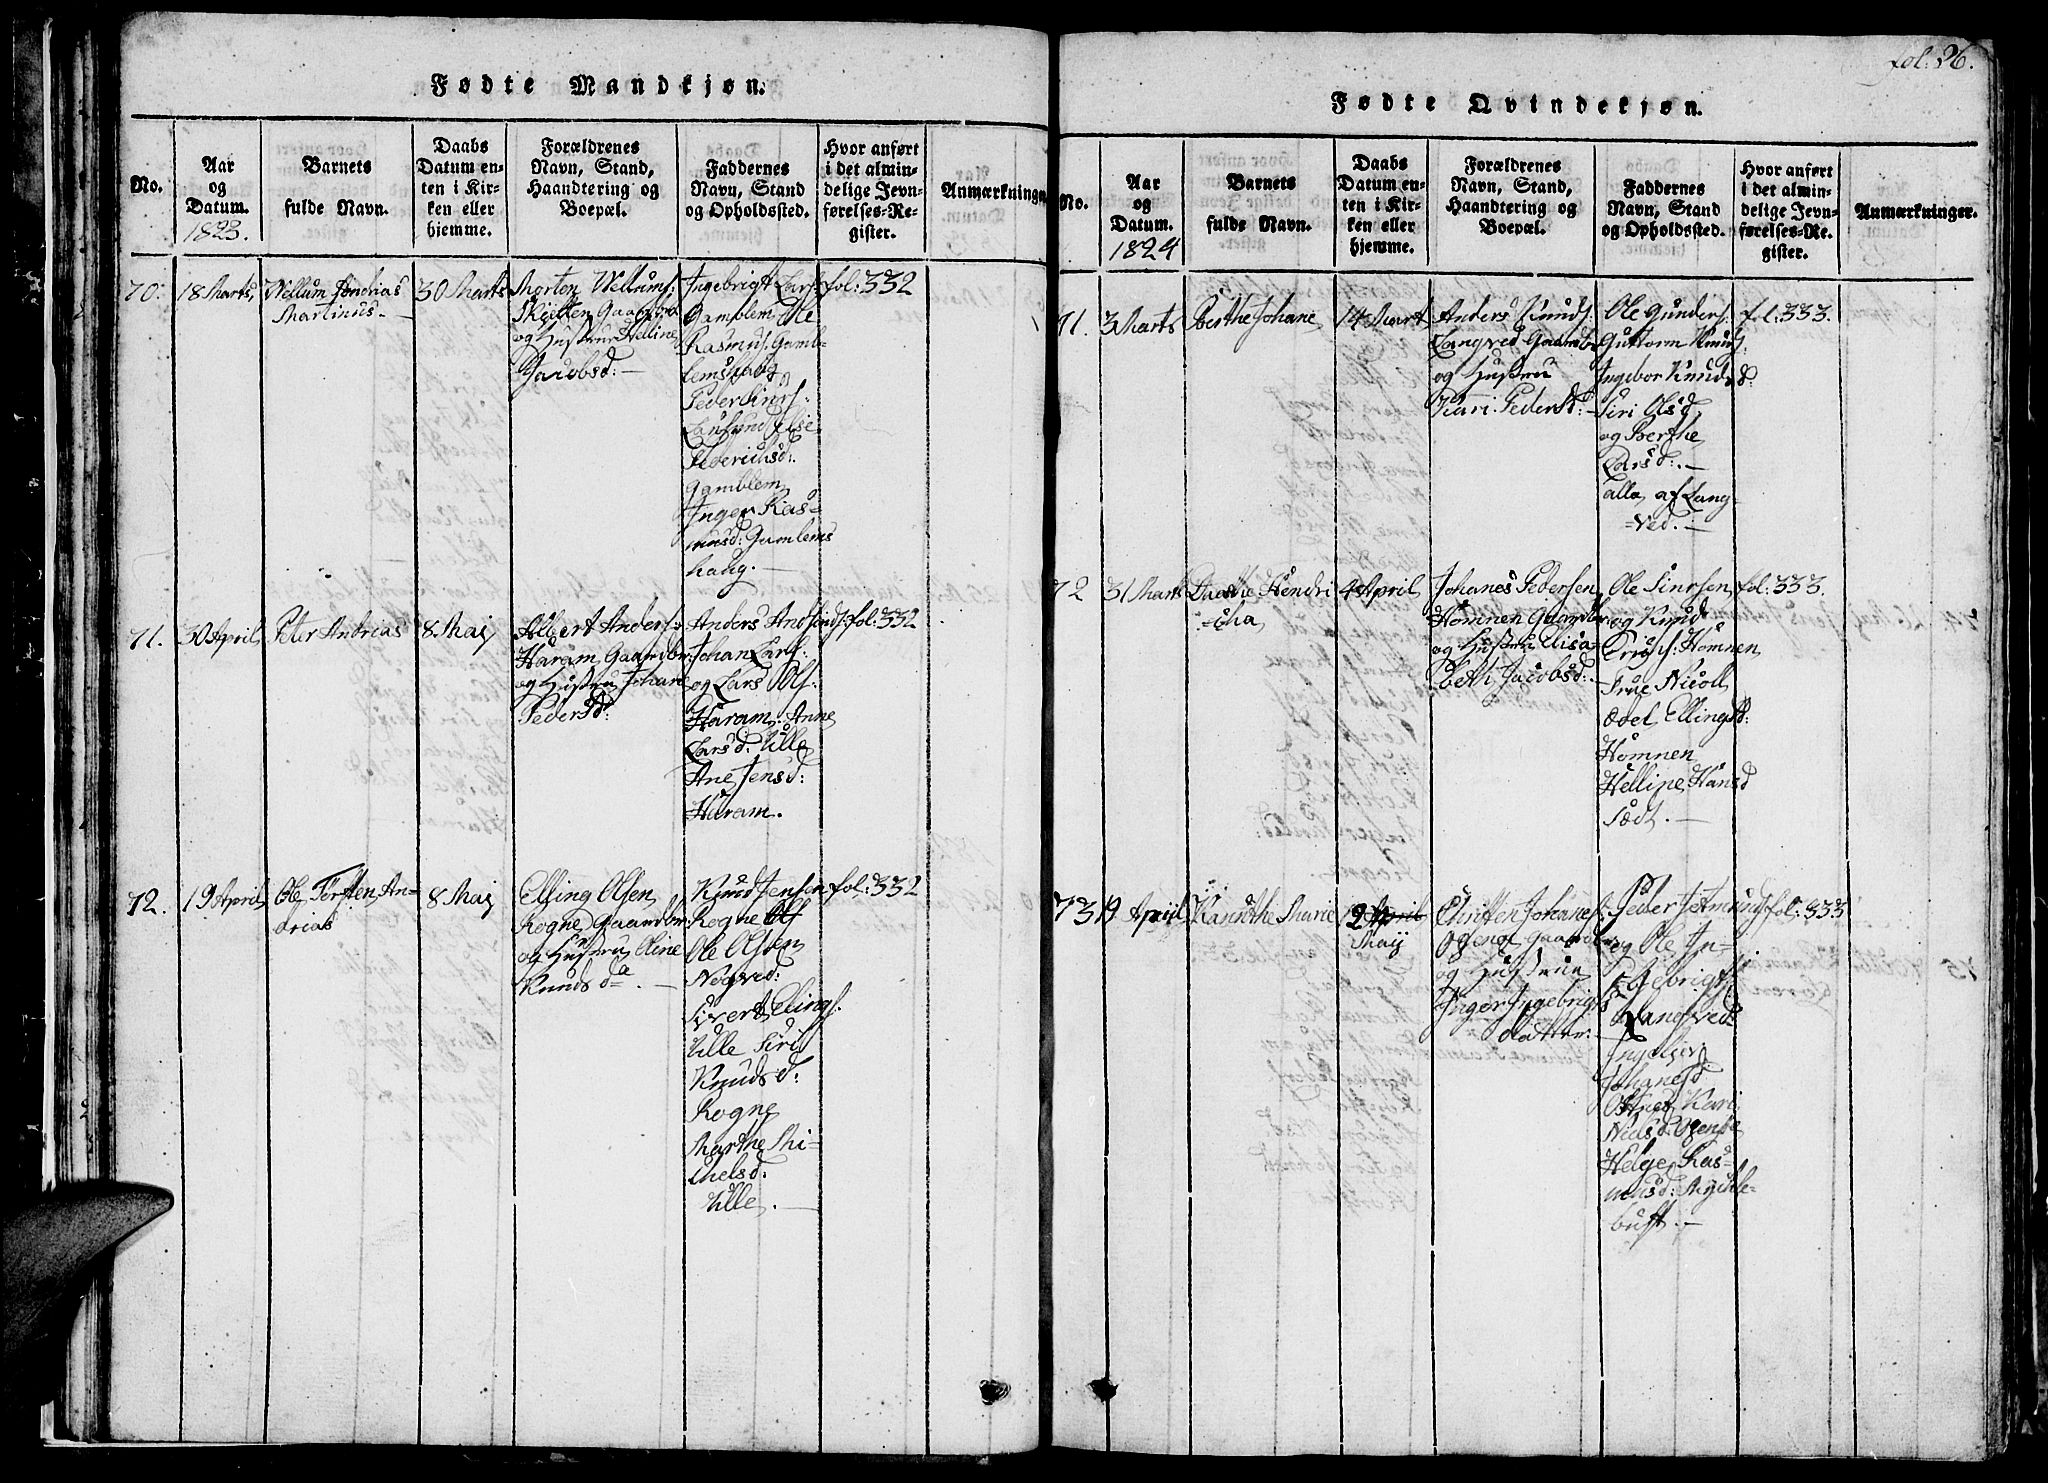 fol: 26.
Fødte Mandkjøn.
No.
Aar
og
Datum.
1823.
Barnets
fulde Navn.
Daabs
Datum en-
ten i Kir-
ken eller
hjemme.
Forældrenes
Navn, Stand,
Haandtering og
Boepæl.
Faddernes
Navn, Stand
og Opholdssted.
Hvor anført
i det almin-
delige Jevn-
førelses-Re-
gister.
Anmærkninger
70.
18 Marts,
Vellum Andrias
Martinus.
30 Marts
Morten Vellums:
Skjelten Gaardbr
og Hustrue Helline
Jacobsd:
Ingebrigt Lars:
Gamblem Ole
Rasmus. Gamb-
lemshoug
Peder
Elsie
Gamblem,
Inger Ras-
musd: Gamlems
haug.
fol: 332
71.
30 April,
Peter Andrias
8 Maj
Albert Anders:
Haram Gaardbr:
og Hustrue Johane
Pedersd:
Anders Andersens:
Johan Lars:
og Lars Ols:
Haram: Anne
Larsd: Ulle
Ane Jensd:
Haram.
fol: 332
72.
19 April
Ole Torsten An-
drias
8 Maj
Elling Olsen,
Rogne, Gaardbr
og Hustrue Oline
Knudsd.
Knud Jensen
Rogne
Ole Olsen
Nogved:
Sivert Elings.
Ulle Siri
Knudsd:
Rogne
Marthe Mi-
chelsd:
Ulle.
fol: 332
Fødte Qvindekjøn.
No.
Aar
og
Datum.
1824
Barnets
fulde Navn.
Daabs
Datum en-
ten i Kir-
ken eller
hjemme.
Forældrenes
Navn, Stand,
Haandtering og
Boepæl.
Faddernes
Navn, Stand
og Opholdssted.
Hvor anført
i det almin-
delige Jevn-
førelses-Re-
gister.
Anmærkninger.
71.
3 Marts
Berthe Johane
14 Mart
Anders Knuds:
Langved Gaardbr
og Hustru
Kari Pedersd:
Ole Gunders.
Guttorm Knuds
Ingebor Knudsd:
Siri Olsd,
og Berthe
Larsd:
alle af Lang-
ved.
fol: 333.
72
31 Marts
Dorthe Hendri
cha
4 April
Johanes Pedersen
Homnen Gaardbr
og Hustrue Elisa
beth Jacobsd:
Ole Sinrsen
og Knud
Erichs: Homnen
True Nicoll
Edel Ellingsd:
Homnen
Helline Hansd
Sødt.
fol: 333.
73
19 April
Kanutthe Marie
2 April
Maij
Christen Johanes:
Gaardbr
og Hustrue
Inger Ingebrigts
datter.
Peder Asmunds
og Ole In-
gebrigts:
Langved:
Ingeborg
Johanesd
Kari
Nielsd:
Helge Ras-
musd: Myckle-
bust.
fol: 333